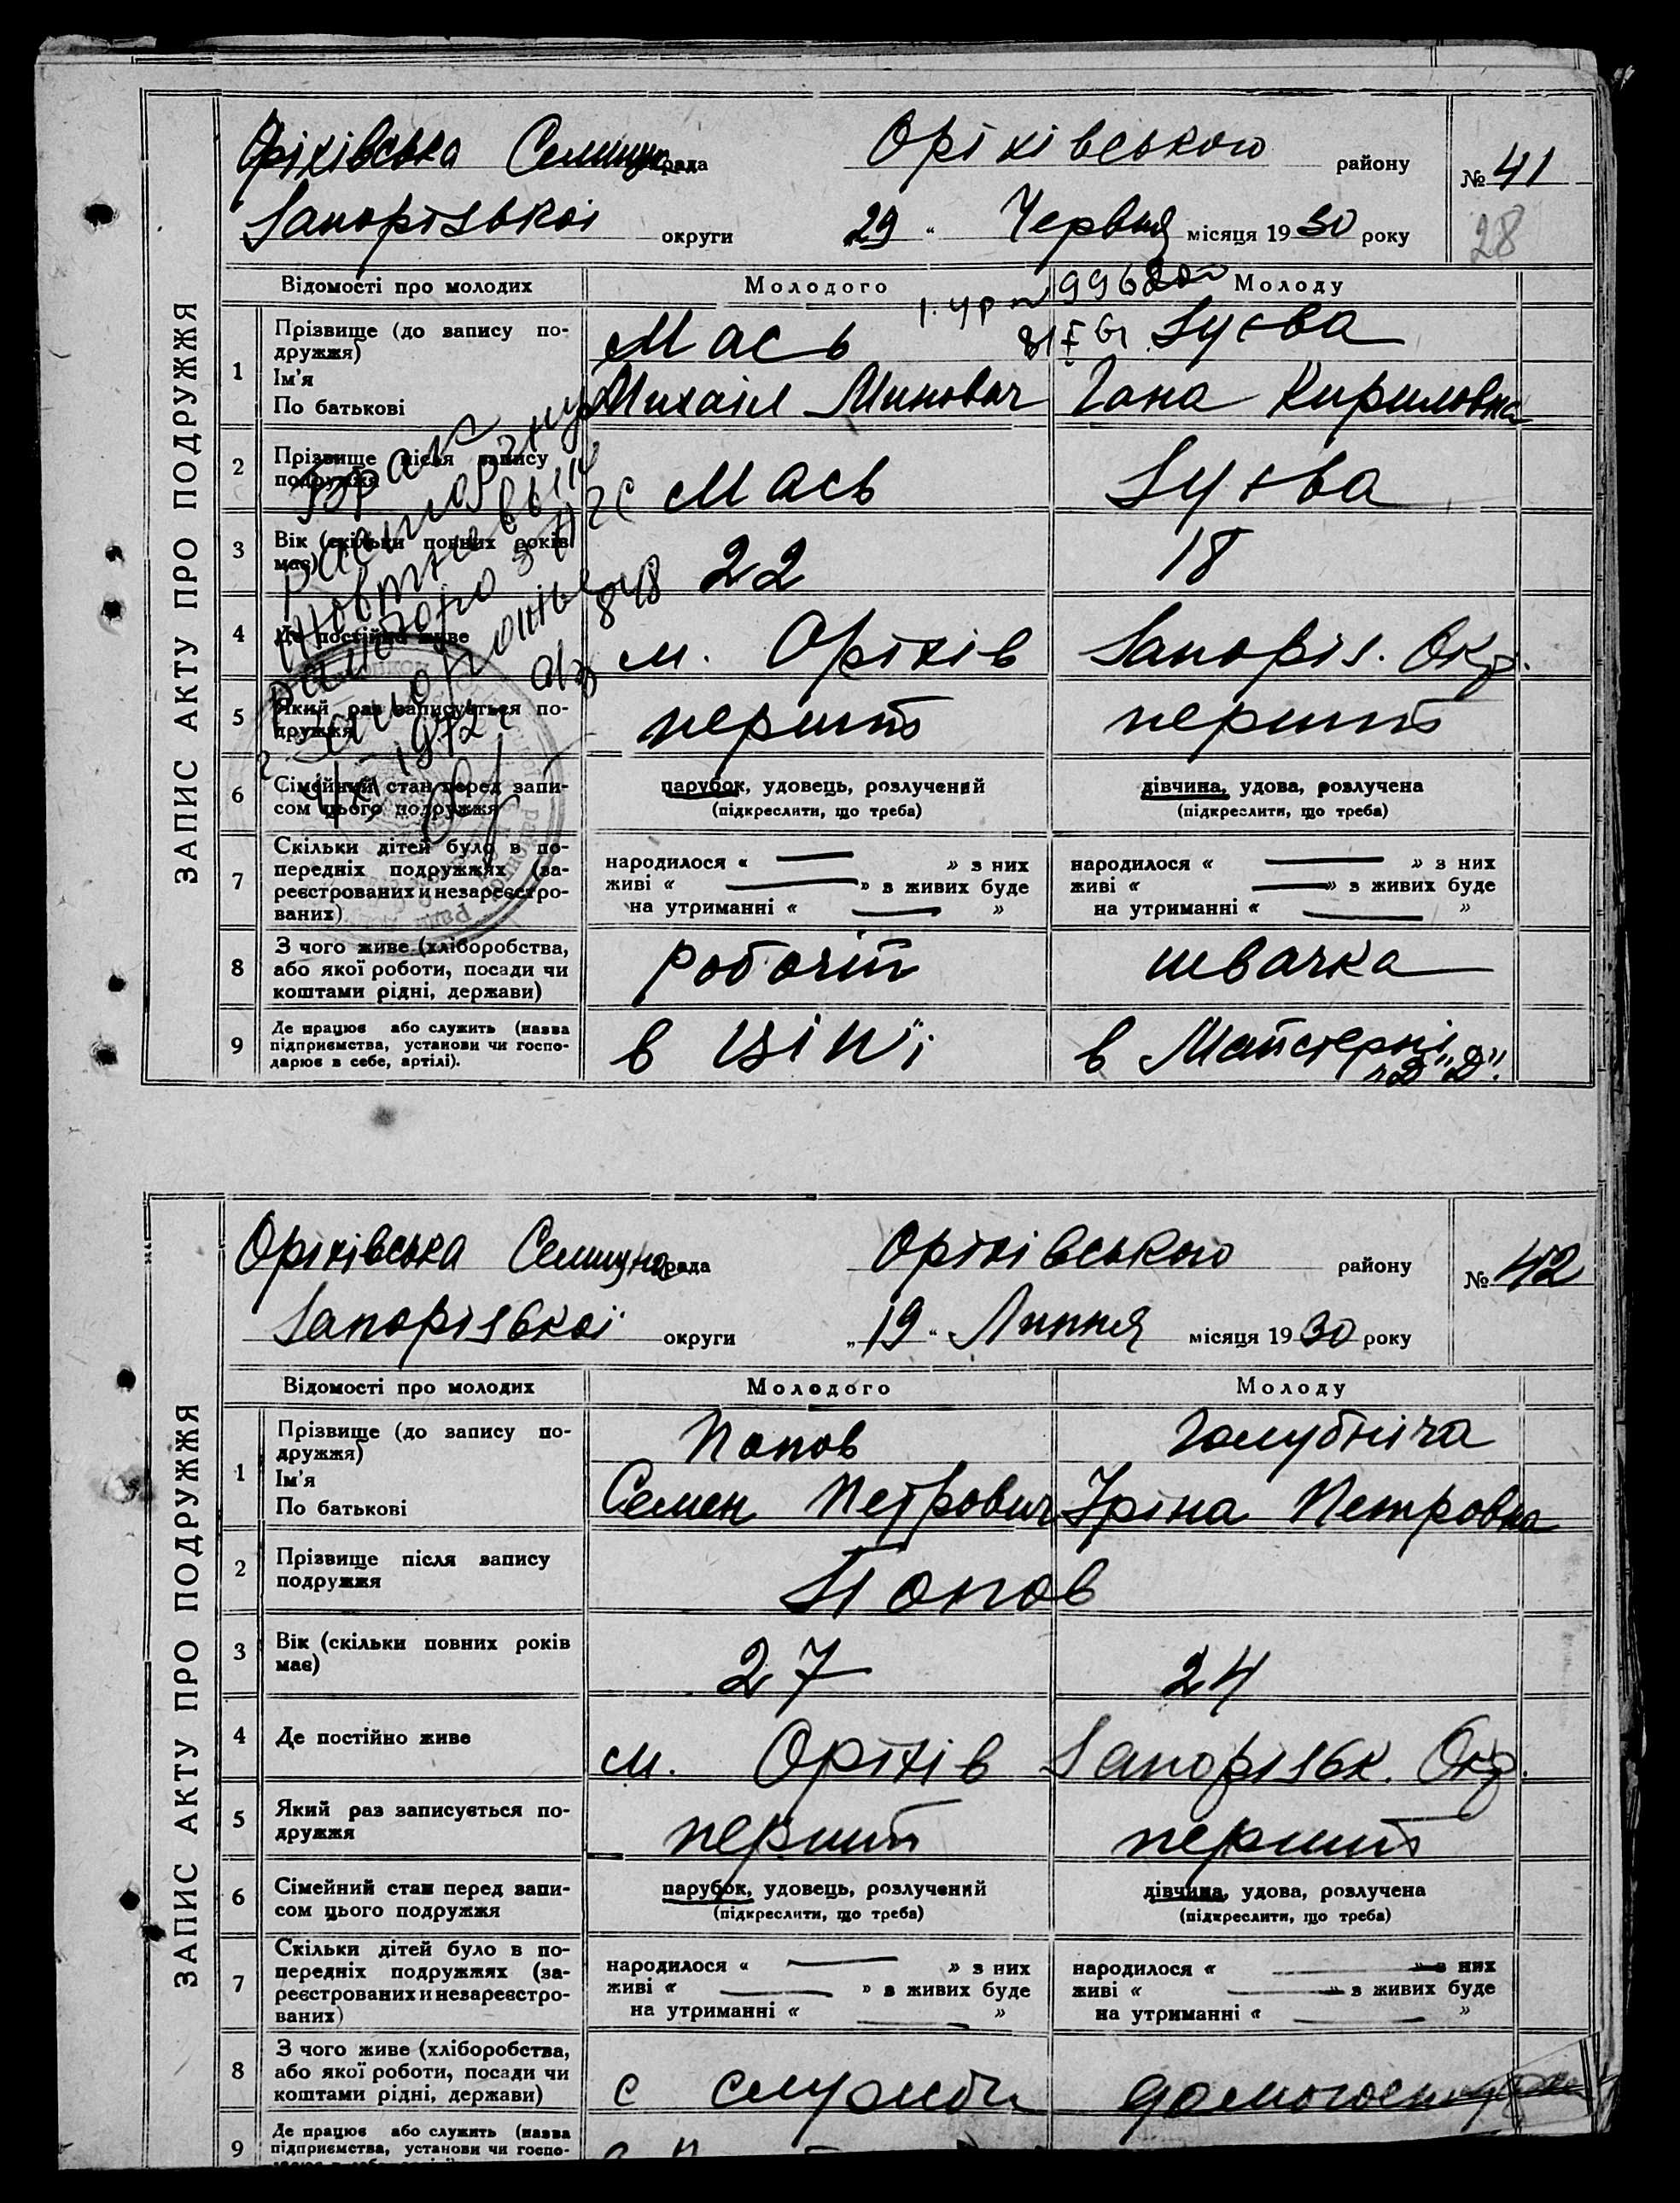 ЗАПИС АКТУ ПРО ПОДРУЖЖЯ
Оріхівська Селищна рада Оріхівського району № 41
Запорізькоі округи 29 " Червня місяця 1930 року 28
Відомості про молодих Молодого Молоду
1 Прізвище (до запису по-
дружжя) Мась Зуєва
Ім'я
По батькові Михаіл Минович Гана Кириловна
2 Прізвище після запису
подружжя Мась Зуєва
3 Вік (скільки повних років
має) 22 18
4 Де постійно живе м. Оріхів Запоріз. Окр.
5 Який раз записується по-
дружжя перший перший
6 Сімейний стан перед запи-
сом цього подружжя
парубок, удовець, розлучений
(підкреслити, що треба)
дівчина, удова, розлучена
(підкреслити, що треба)
7 Скільки дітей було в по-
передніх подружжях (за-
реєстрованих и незареєстро-
ваних)
народилося « — » з них
живі « — » з живих буде
на утриманні « — »
народилося « — » з них
живі « — » з живих буде
на утриманні « — »
8 З чого живе (хліборобства,
або якої роботи, посади чи
коштами рідні, держави) робочій швачка
9 Де працює або служить (назва
підприємства, установи чи госпо-
дарює в себе, артілі). в в Майстерні
Брак
1972 г
ЗАПИС АКТУ ПРО ПОДРУЖЖЯ
Оріхівська Селищна рада Оріхівського району № 42
Запорізькоі округи „ 19 " Липня місяця 1930 року
Відомості про молодих Молодого Молоду
1 Прізвище (до запису по-
дружжя) Попов Голубніча
Ім'я
По батькові Семен Петрович Іріна Петровна
2 Прізвище після запису
подружжя Попов
3 Вік (скільки повних років
має) 27 24
4 Де постійно живе м. Оріхів Запорізьк. Окр.
5 Який раз записується по-
дружжя перший перший
6 Сімейний стан перед запи-
сом цього подружжя
парубок, удовець, розлучений
(підкреслити, що треба)
дівчина, удова, розлучена
(підкреслити, що треба)
7 Скільки дітей було в по-
передніх подружжях (за-
реєстрованих и незареєстро-
ваних)
народилося « — » з них
живі « — » в живих буде
на утриманні « — »
народилося « — » з них
живі « — » з живих буде
на утриманні « — »
8 З чого живе (хліборобства,
або якої роботи, посади чи
коштами рідні, держави) с служби
9 Де працює або служить (назва
підприємства, установи чи госпо-